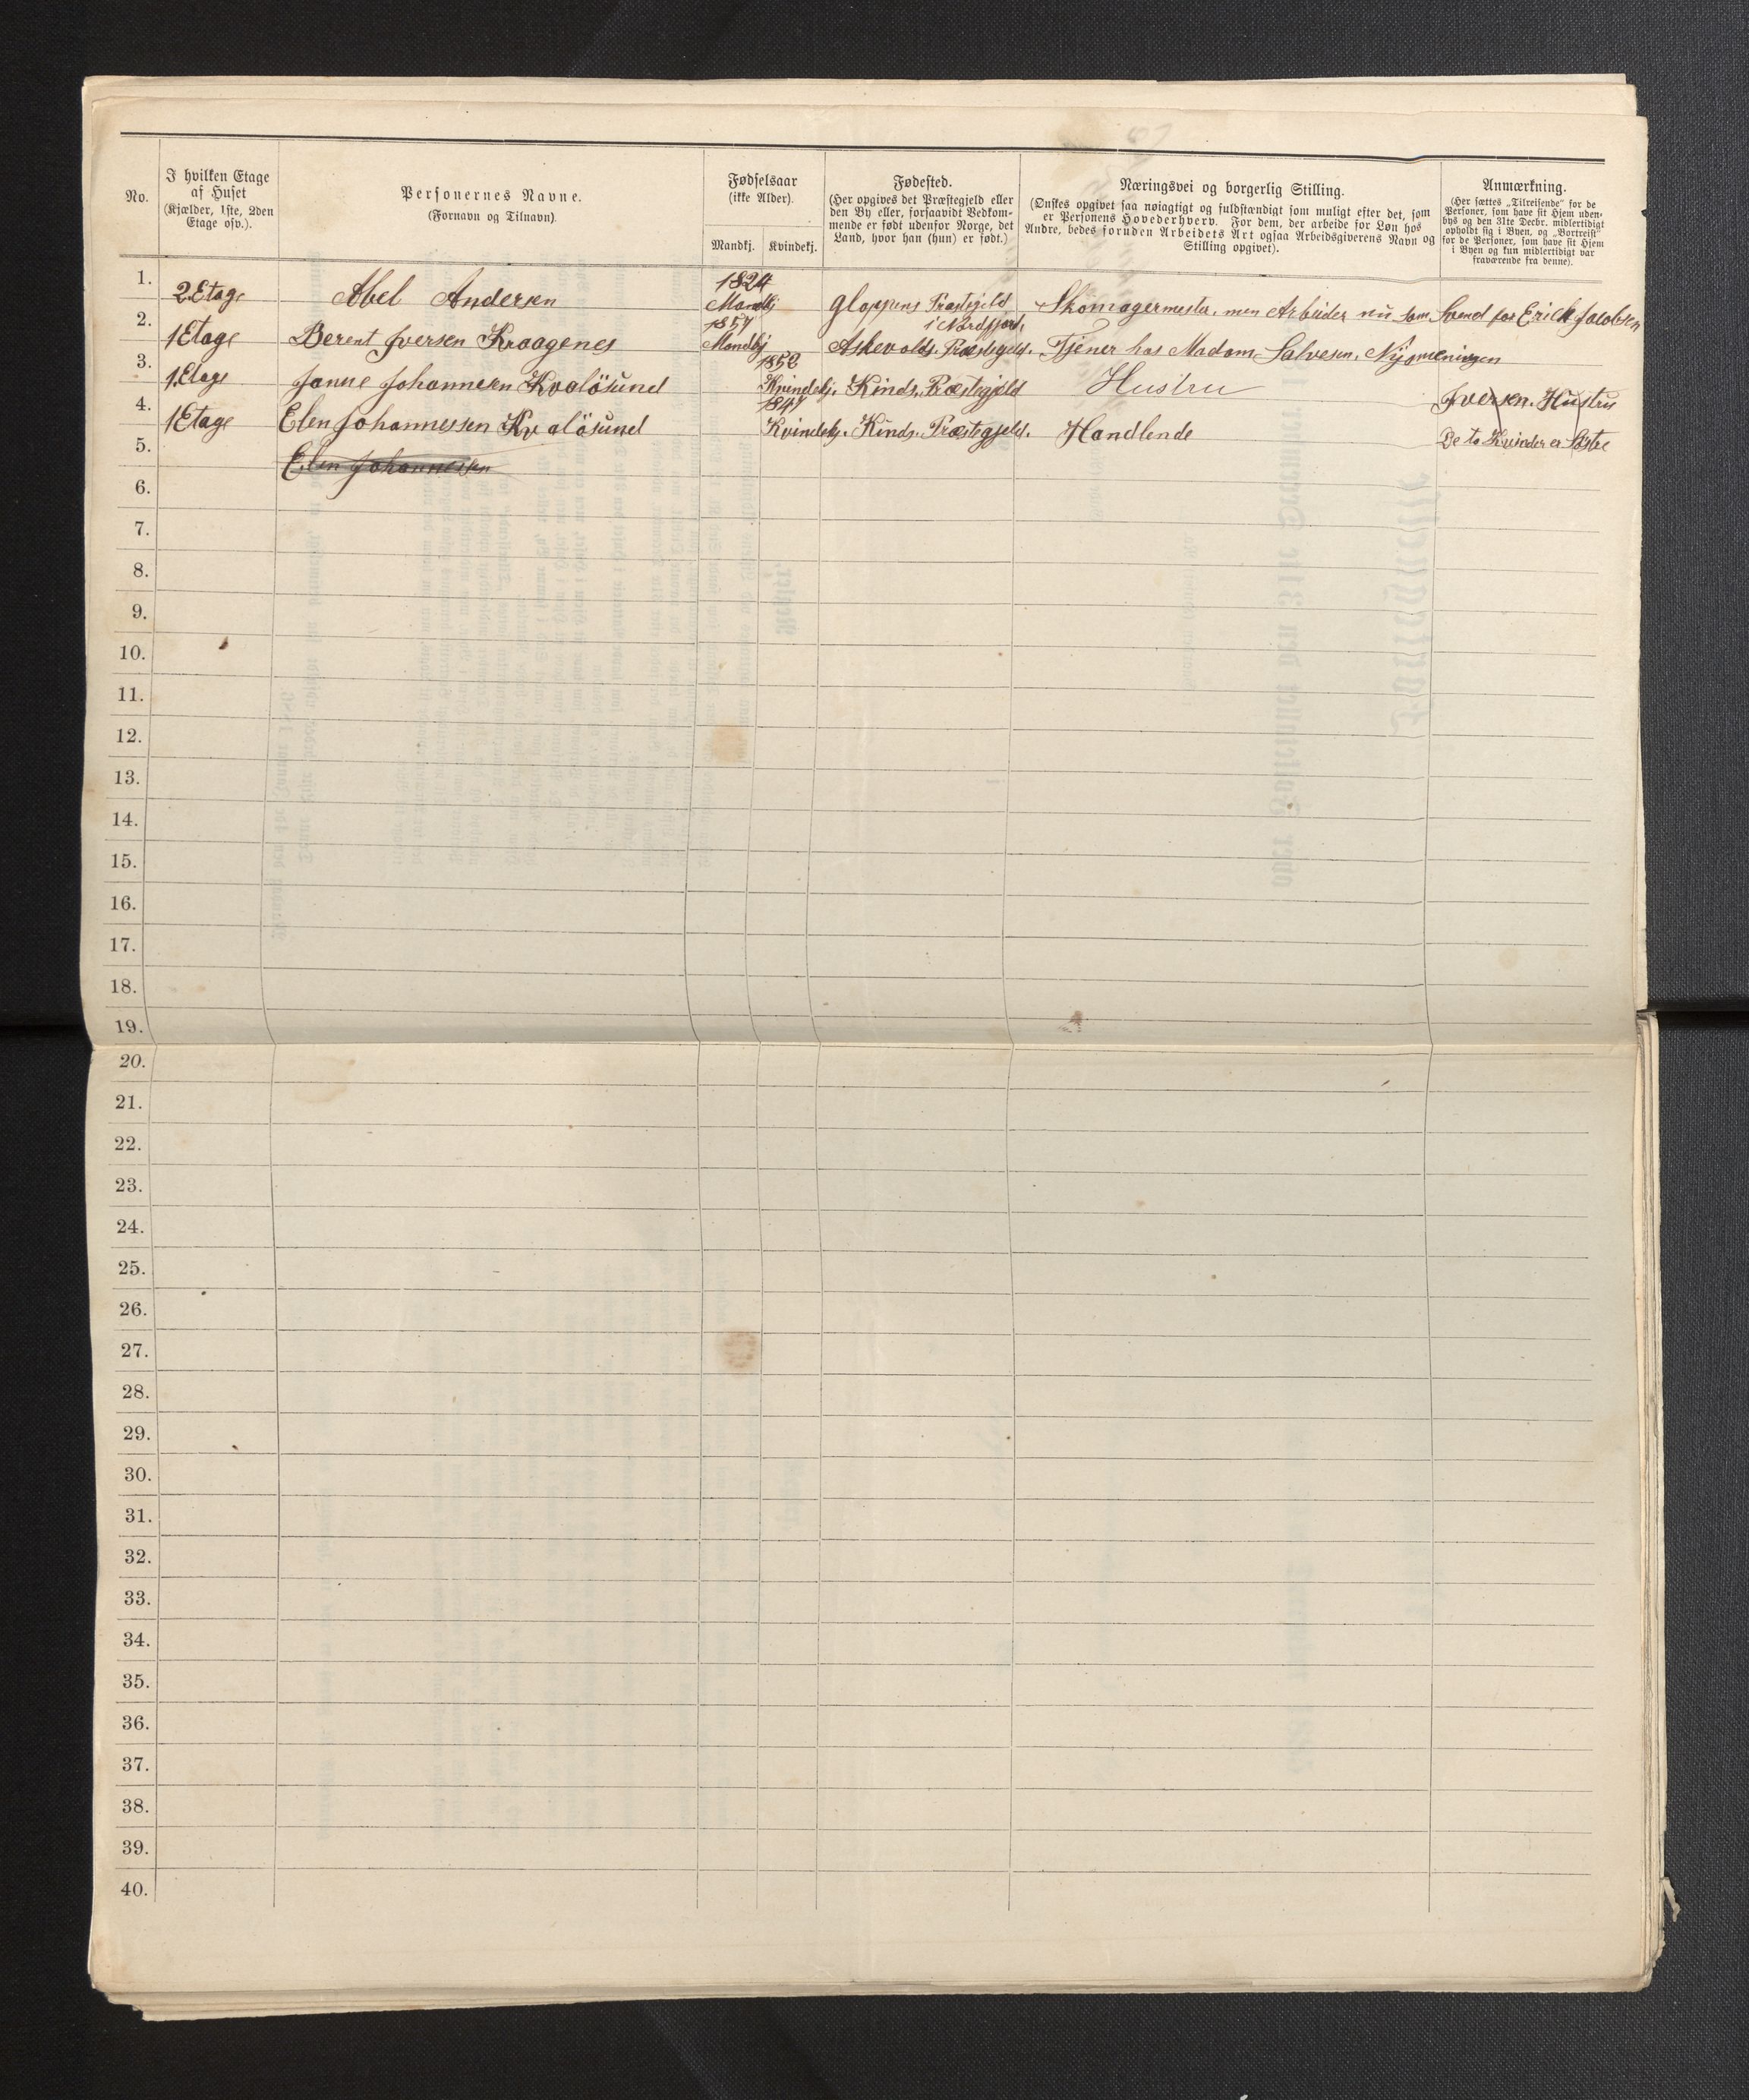 No.
I hvilken Etage
af Huset
(Kjælder, 1ste, 2den
Etage osv.).
Personernes Navne.
(Fornavn og Tilnavn).
Fødselsaar
(ikke Alder).
Mandkj. Kvindekj.
Fødested.
(Her opgives det Præstegjeld eller
den By eller, forsaavidt Vedkom-
mende er født udenfor Norge, det
Land, hvor han (hun) er født.)
Næringsvei og borgerlig Stilling.
(Ønskes opgivet saa nøiagtigt og fuldstændigt som muligt efter det, som
er Personens Hovederhverv. For dem, der arbeide for Løn hos
Andre, bedes foruden Arbeidets Art ogsaa Arbeidsgiverens Navn og
Stilling opgivet).
Anmærkning.
(Her sættes „Tilreisende“ for de
Personer, som have sit Hjem uden-
bys og den 31te Decbr. midlertidigt
opholdt sig i Byen, og „Bortreist“
for de Personer, som have sit Hjem
i Byen og kun midlertidigt var
fraværende fra denne).
1. 2 Etage Abel Andersen 1824 Mandkj Gloppens Præstegjeld i Nordfjord. Skomagermester, men Arbeider nu som Svend for Erick Jacobsen
2. 1 Etage Berent Iversen Kraagenes 1857 Mandkj Askevolds. Præstegjeld. Tjener hos Madam Salvesen,
3. 1 Etage Janne Johannesen Kvalösund 1852 Kvindekj. Kinds. Præstegjeld Hustru Iversen. Hustru
4. 1 Etage Elen Johannessen Kvalösund 1847 Kvindekj. Kinds. Præstegjeld. Handlende De to Kvinder er Søstre
5. Elen Johannessen
6.
7.
8.
9.
10.
11.
12.
13.
14.
15.
16.
17.
18.
19.
20.
21.
22.
23.
24.
25.
26.
27.
28.
29.
30.
31.
32.
33.
34.
35.
36.
37.
38.
39.
40.